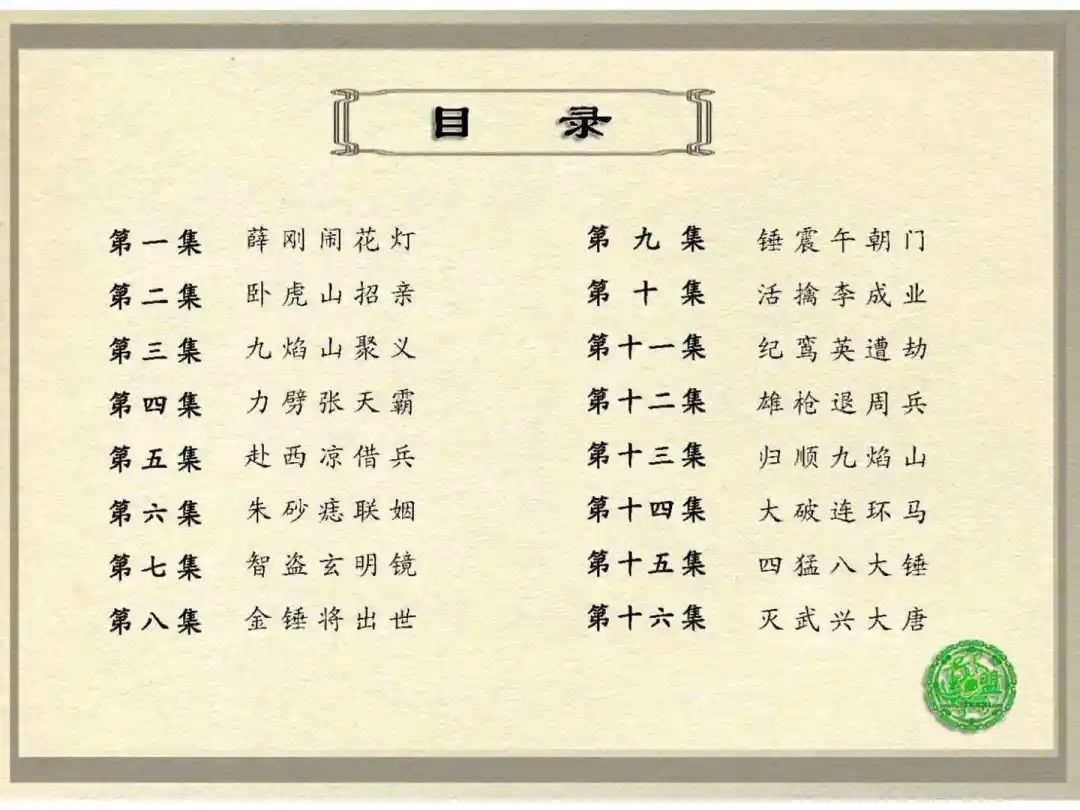 目 录
第一集 薛刚闹花灯
第二集 卧虎山招亲
第三集 九焰山聚义
第四集 力劈张天霸
第五集 赴西凉借兵
第六集 朱砂痣联姻
第七集 智盗玄明镜
第八集 金锤将出世
第九集 锤震午朝门
第十集 活擒李成业
第十一集 纪鸾英遭劫
第十二集 雄枪退周兵
第十三集 归顺九焰山
第十四集 大破连环马
第十五集 四猛八大锤
第十六集 灭武兴大唐